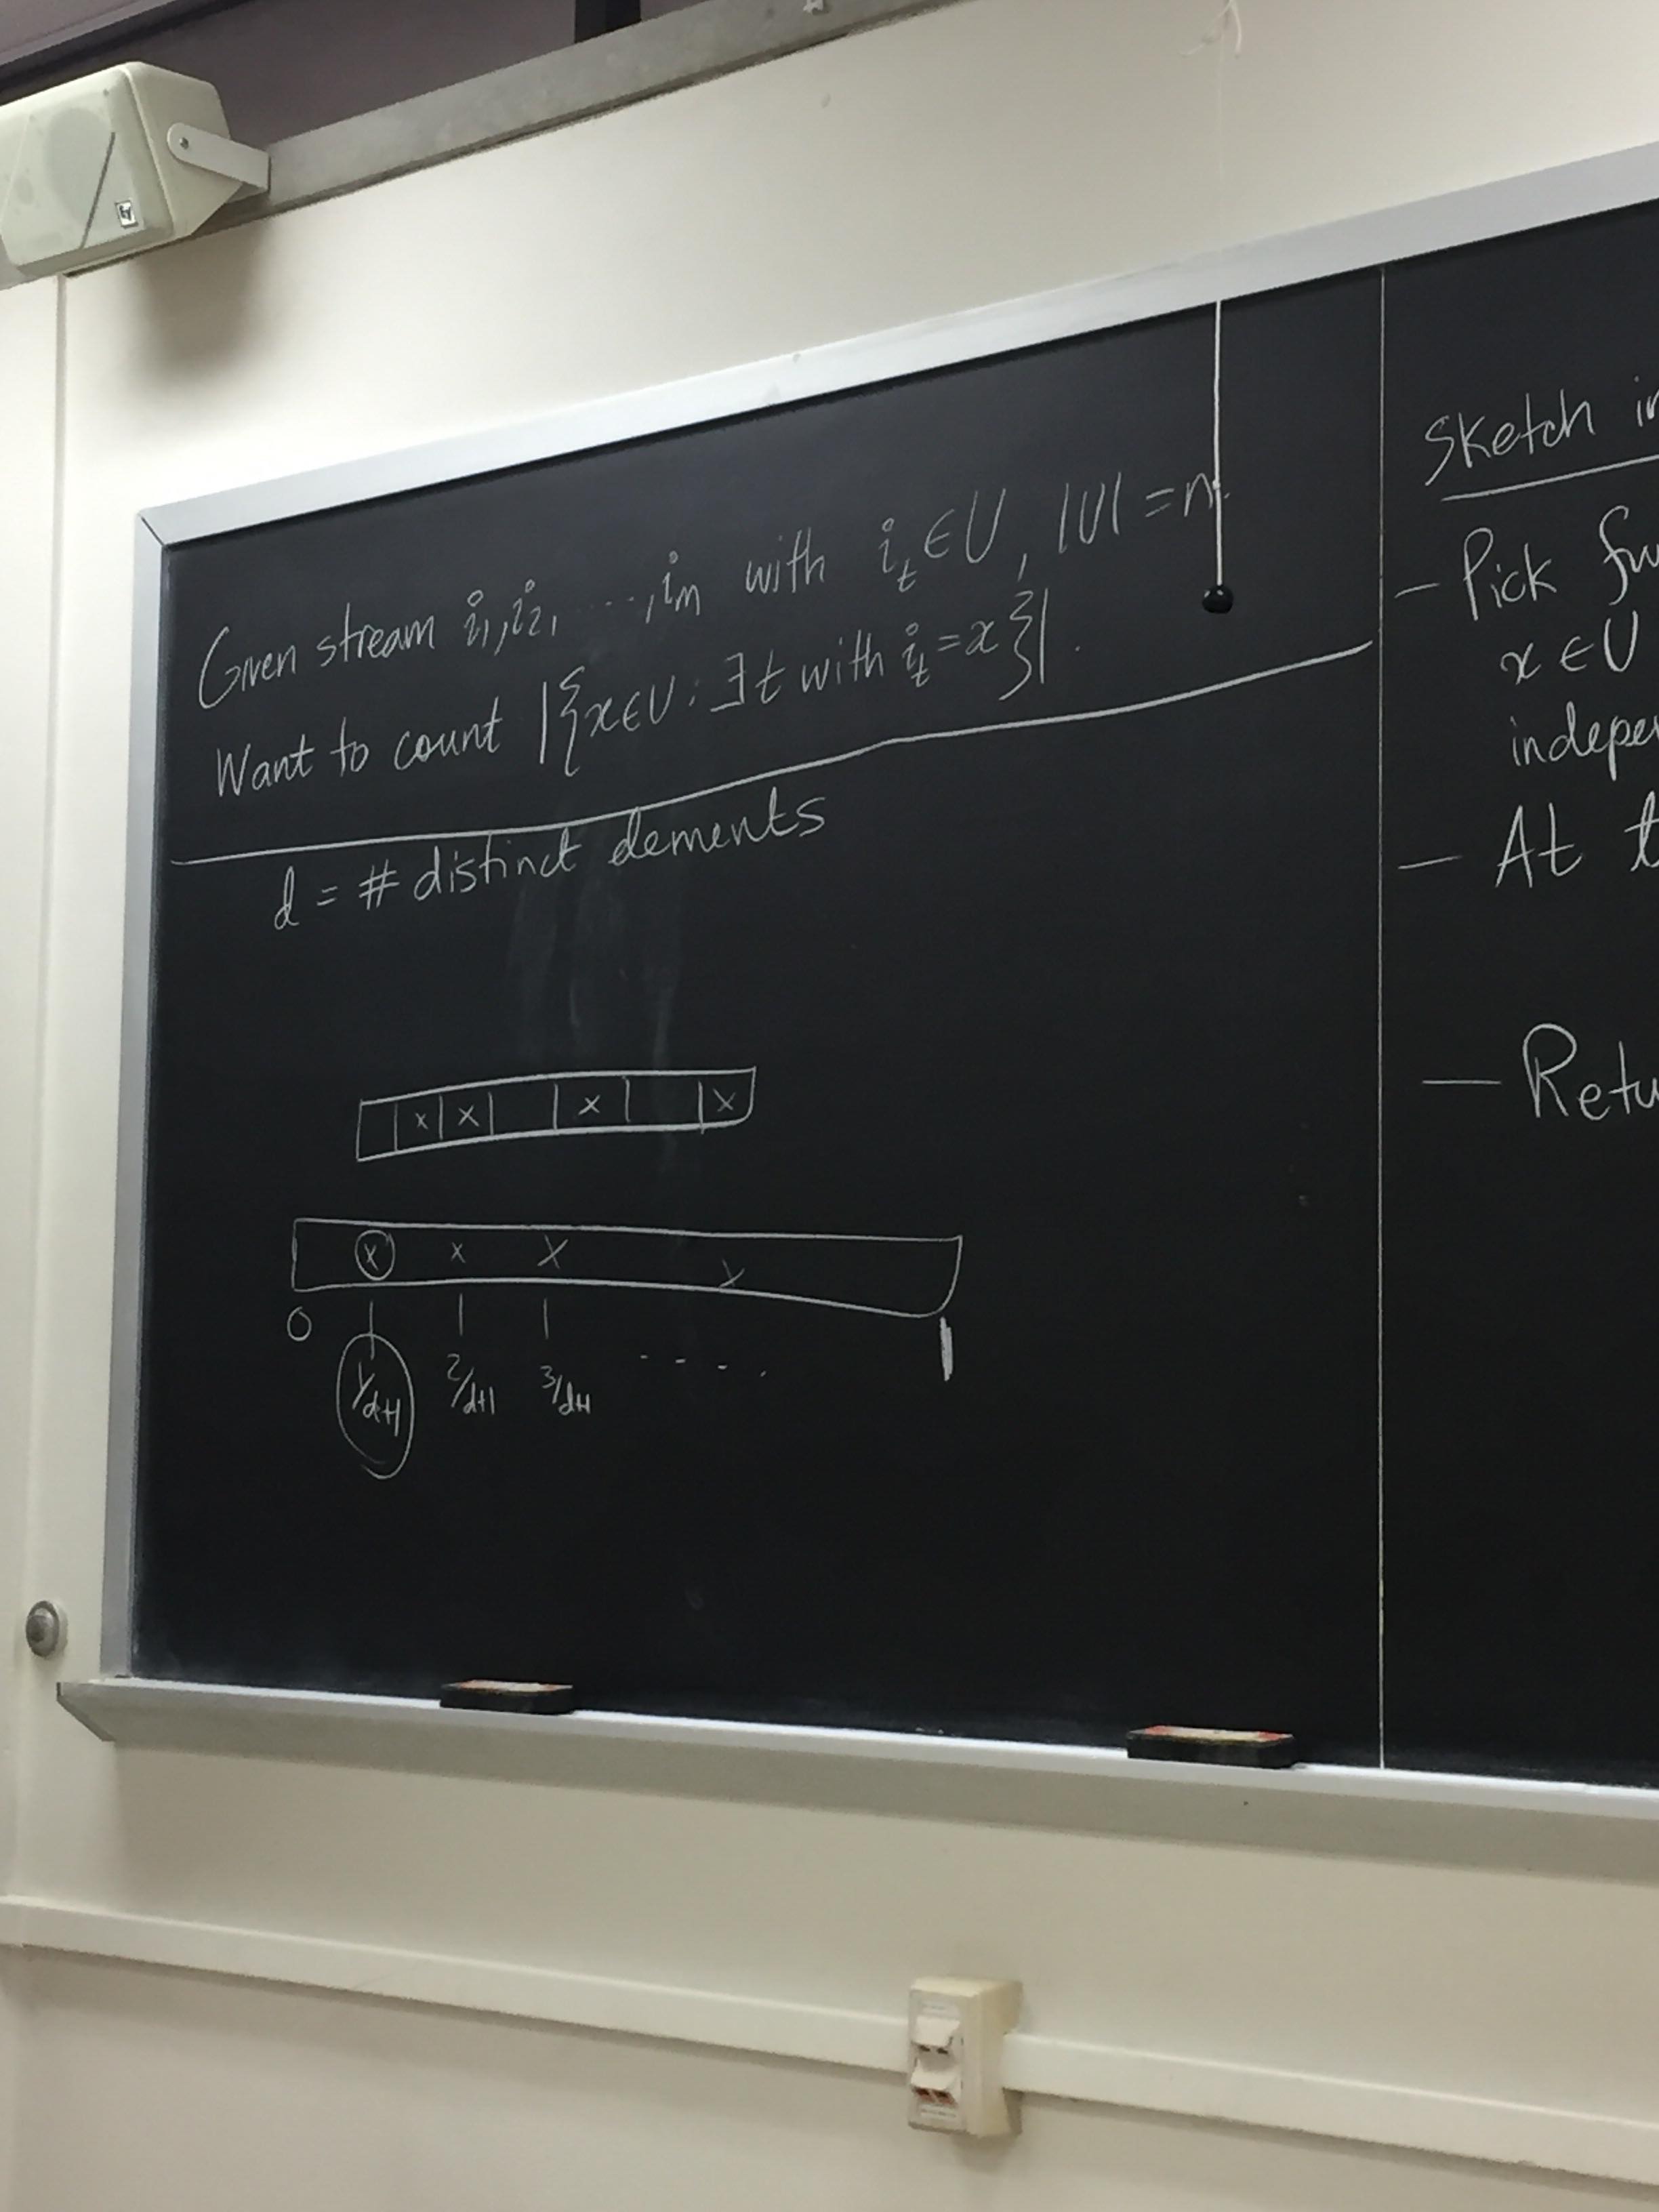 Given stream i₁, i₂, ....., iₘ with iₜ ∈ U, |U| = n.
Want to count |{x∈U : ∃t with iₜ = x}|.
d = # distinct elements
x x x x
x x x x
0 1
1/d+1 2/d+1 3/d+1 - - - .
Sketch
- Pick
x ∈ U
- At